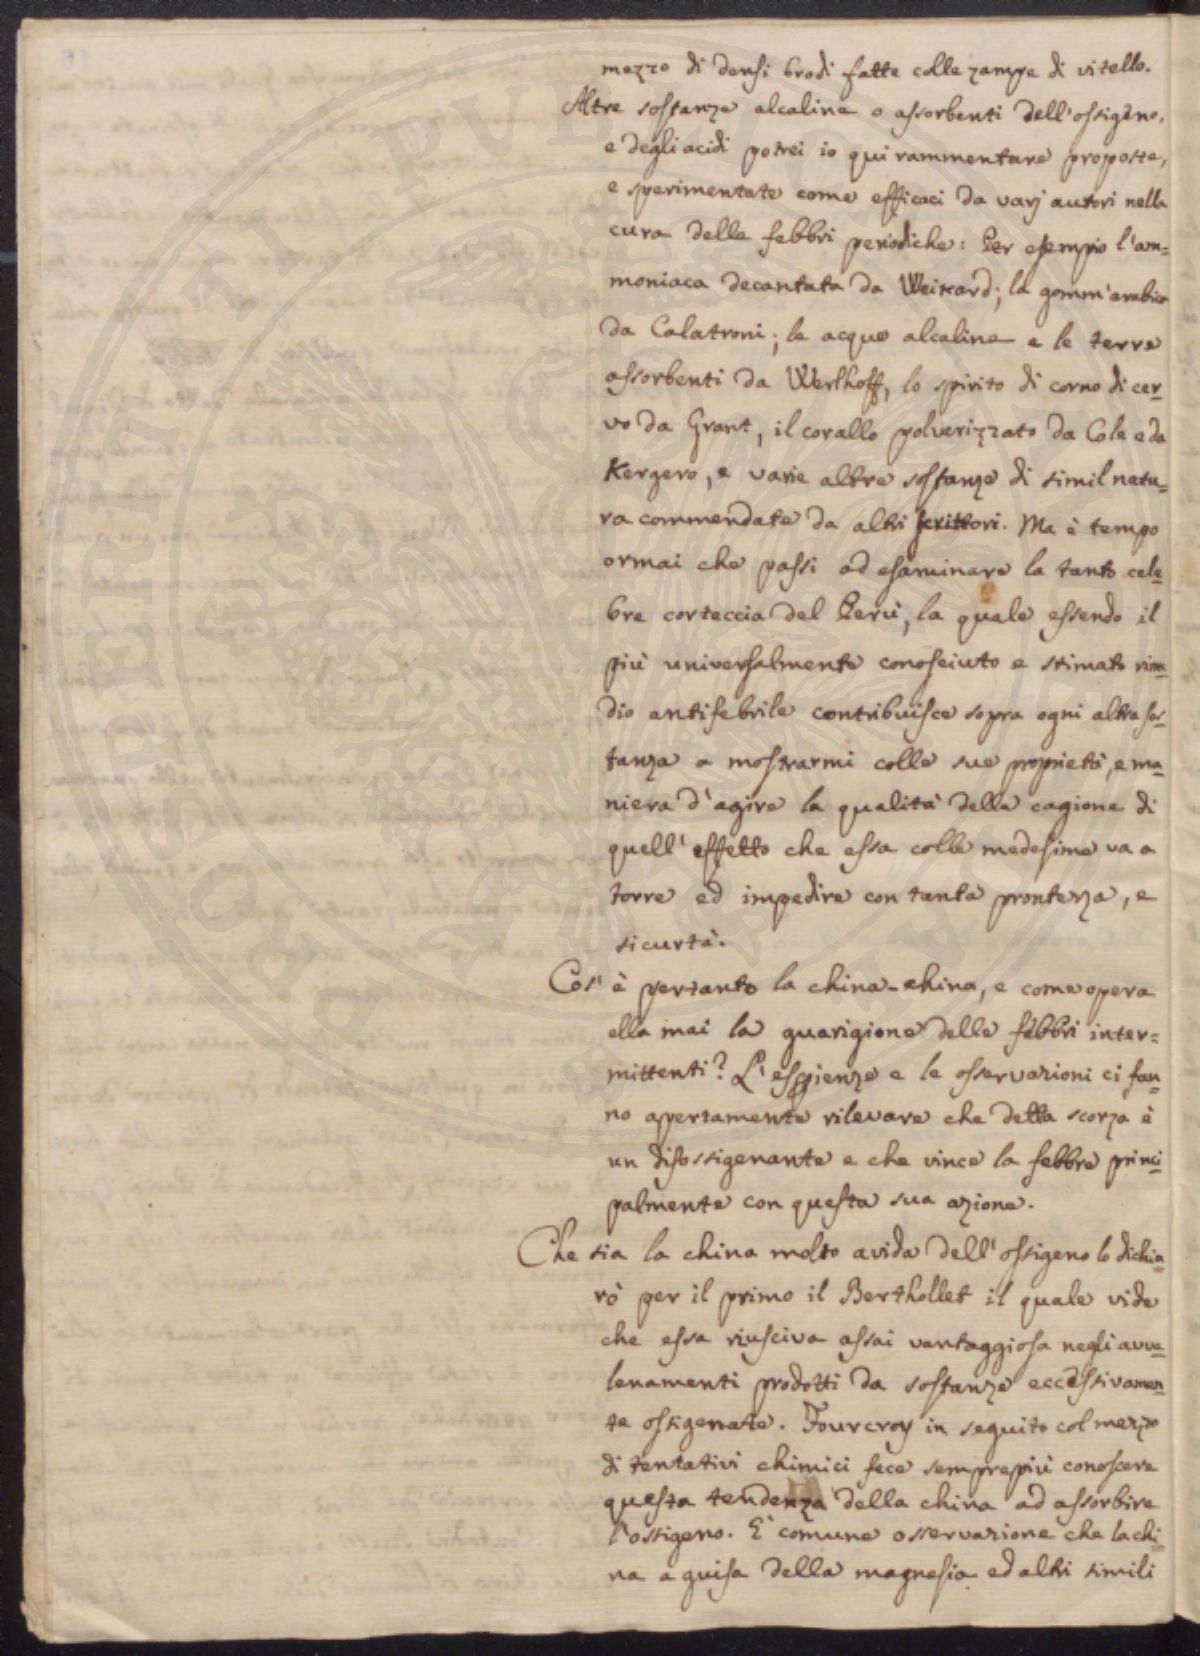 mezzo di densi brodi fatte colle zampe di vitello.
Altre sostanze alcaline o assorbenti dell'ossigeno,
e degli acidi potrei io qui rammentare proposte,
e sperimentate come efficaci da varj autori nella
cura delle febbri periodiche: Per esempio l'am=
moniaca decantata da Weikard; la gomm'arabica
da Calatroni; le acque alcaline e le terre
assorbenti da Werlhoff, lo spirito di corno di cer-
vo da Grant, il corallo polverizzato da Cole e da
Kergero, e varie altre sostanze di simil natu-
ra commendate da altri scrittori. Ma è tempo
ormai che passi ad esaminare la tanto cele-
bre corteccia del Perù, la quale essendo il
più universalmente conosciuto e stimato rime-
dio antifebrile contribuisce sopra ogni altra sos-
tanza a mostrarmi colle sue proprietà, e ma-
niera d'agire la qualità della cagione di
quell'effetto che essa colle medesime va a
torre ed impedire con tanta prontezza, e
sicurtà.
Cos'è pertanto la china-china, e come opera
ella mai la guarigione delle febbri inter=
mittenti? L'esperienze e le osservazioni ci fan-
no apertamente rilevare che detta scorza è
un disossigenante e che vince la febbre princi-
palmente con questa sua azione.
Che sia la china molto avida dell'ossigeno lo dichia-
rò per il primo il Berthollet il quale vide
che essa riusciva assai vantaggiosa negli avve-
lenamenti prodotti da sostanze eccessivamen-
te ossigenate. Fourcroy in seguito col mezzo
di tentativi chimici fece semprepiù conoscere
questa tendenza della china ad assorbire
l'ossigeno. E' comune osservazione che la chi-
na a guisa della magnesia ed altri simili